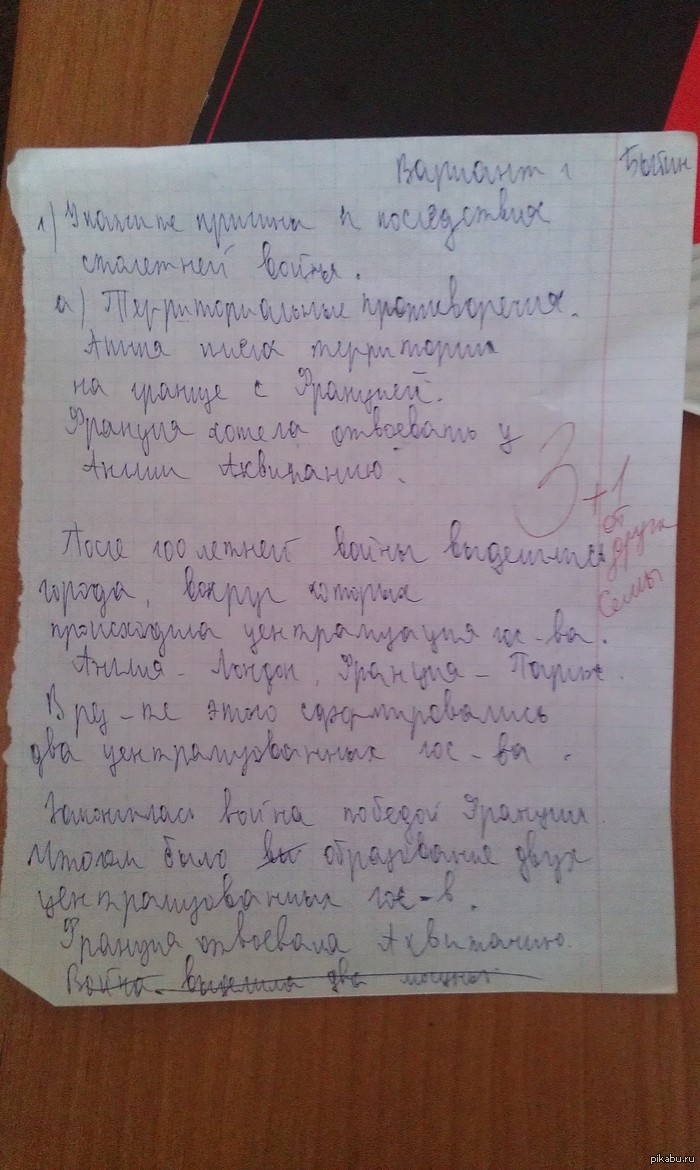 Вариант 1 Бытин
1) Укажите причины и последствия
столетней войны.
а) Территориальные противоречия.
Англия имела территории
на границе с Францией.
Франция хотела отвоевать у
Англии Аквитанию.
3 +1
от
друга
Сёмы
После 100 летней войны выделились
города, вокруг которых
происходила централизация гос-ва.
Англия - Лондон, Франция - Париж.
В рез-те этого сформировались
два централизованных гос-ва.
Закончилась война победой Франции.
Итогом было вы образование двух
централизованных гос-в.
Франция отвоевала Аквитанию.
Война выделила два мощных
pikabu.ru